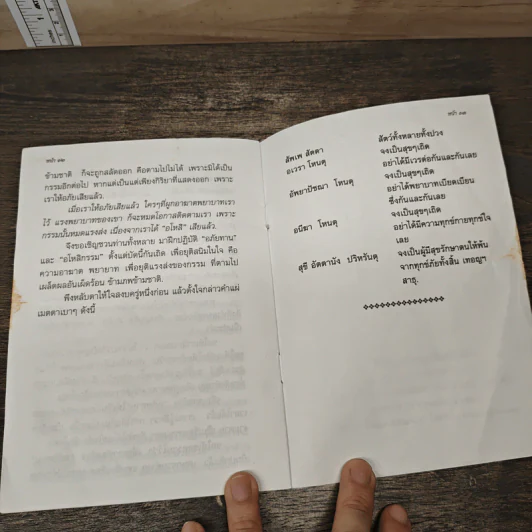 หน้า ๑๒
ข้ามชาติ ก็จะถูกสลัดออก คือตามไปไม่ได้ เพราะมิได้เป็น
กรรมอีกต่อไป หากแต่เป็นแต่เพียงกิริยาที่แสดงออก เพราะ
เราให้อภัยเสียแล้ว.
เมื่อเราให้อภัยเสียแล้ว ใครๆที่ผูกอาฆาตพยาบาทเรา
ไว้ แรงพยาบาทของเขา ก็จะหมดโอกาสติดตามเรา เพราะ
กรรมนั้นหมดแรงส่ง เนื่องจากเราได้ “อโหสิ” เสียแล้ว.
จึงขอเชิญชวนท่านทั้งหลาย มาฝึกปฏิบัติ “อภัยทาน”
และ “อโหสิกรรม” ตั้งแต่บัดนี้กันเถิด เพื่อยุติสนิมในใจ คือ
ความอาฆาต พยาบาท เพื่อยุติแรงส่งของกรรม ที่ตามไป
เผล็ดผลอันเผ็ดร้อน ข้ามภพข้ามชาติ.
พึงหลับตาให้ใจสงบครู่หนึ่งก่อน แล้วตั้งใจกล่าวคำแผ่
เมตตาเบาๆ ดังนี้
หน้า ๑๓
สัพเพ สัตตา สัตว์ทั้งหลายทั้งปวง
จงเป็นสุขๆเถิด
อะเวรา โหนตุ อย่าได้มีเวรต่อกันและกันเลย
จงเป็นสุขๆเถิด
อัพยาปัชฌา โหนตุ อย่าได้พยาบาทเบียดเบียน
ซึ่งกันและกันเลย
จงเป็นสุขๆเถิด
อนีฆา โหนตุ อย่าได้มีความทุกข์กายทุกข์ใจ
เลย
สุขี อัตตานัง ปริหรันตุ จงเป็นผู้มีสุขรักษาตนให้พ้น
จากทุกข์ภัยทั้งสิ้น เทอญฯ
สาธุ.